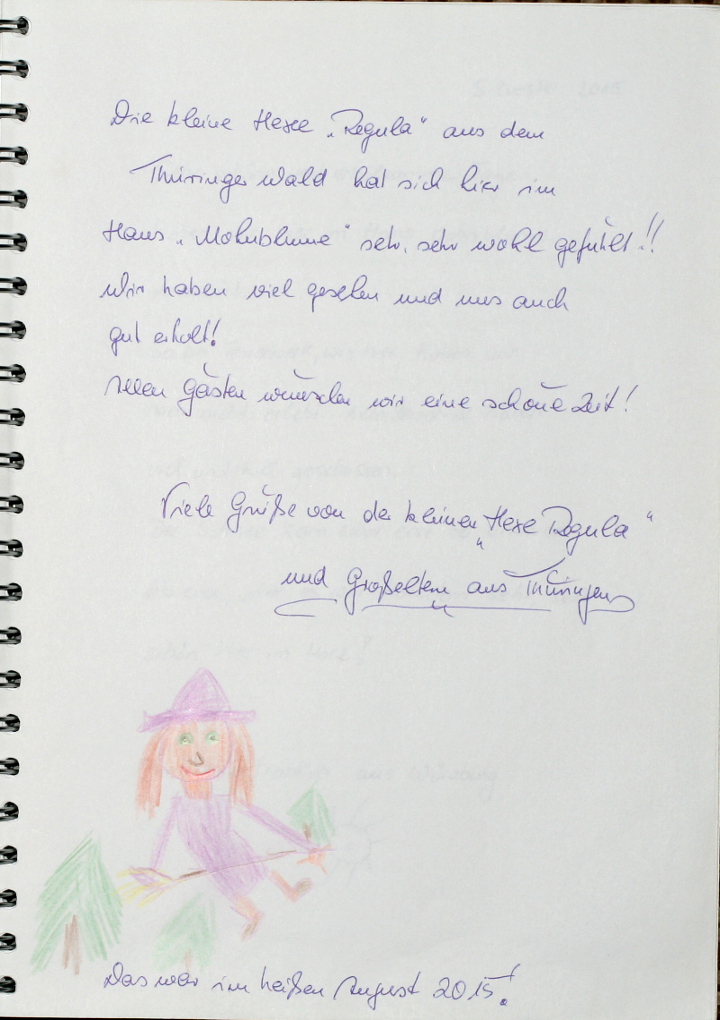 Die kleine Hexe „Regula“ aus dem
Thüringer Wald hat sich hier im
Haus „Mohnblume“ sehr, sehr wohl gefühlt!!
Wir haben viel gesehen und uns auch
gut erholt!
Allen Gästen wünschen wir eine schöne Zeit!
Viele Grüße von der kleinen „Hexe Regula“
und Großeltern aus Thüringen
Das war im heißen August 2015!